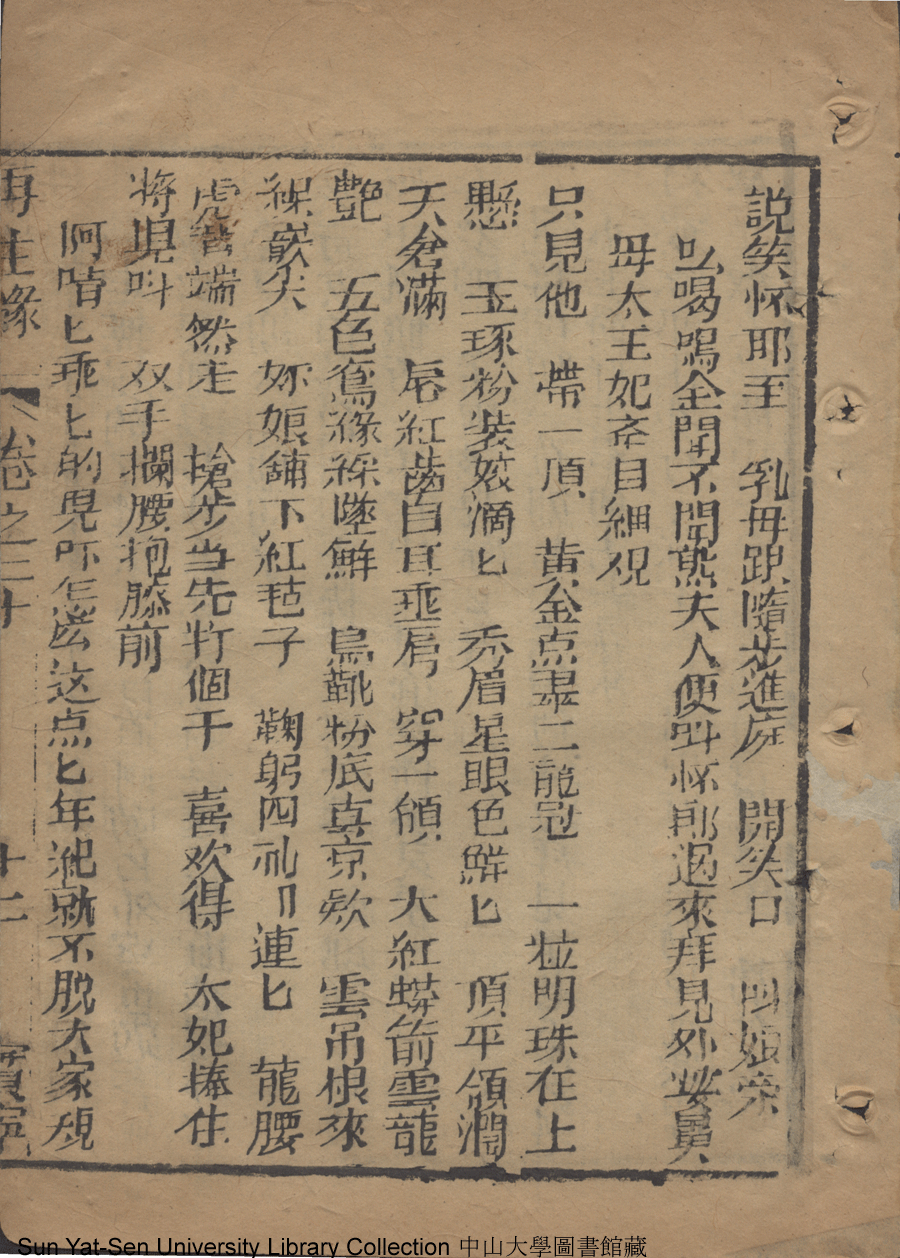 說笑怀耶至　乳母跟隨步進庭　開笑口　叫娘亲
么喝嗚全聞不聞熊夫人便叫怀郎過來拜見外
母太王妃斉目細覌
只見他　帶一頂　黄金点翠二龍冠　一粒明珠在上
懸　玉琢粉装娇滴匕　秀眉星眼色鮮匕　頂平額濶
天倉滿　唇紅齒白耳垂肩　穿一領　大紅蟒箭雲龍
艷　五色鴛絲縧墜鮮　烏靴粉底真京欵　雲吊根來
綵嵌尖　妳娘鋪下紅毡子　鞠躬四礼連匕　龍腰
虎背端然走　搶步当先打個干　喜欢得　太妃捧住
將現呌　双手攔腰抱膝前
阿唷匕乖匕的児吓怎庅这点匕年紀就不脫大家規
再生緣　卷之三十　十二　寶寧
Sun Yat-Sen University Library Collection 中山大學圖書館藏